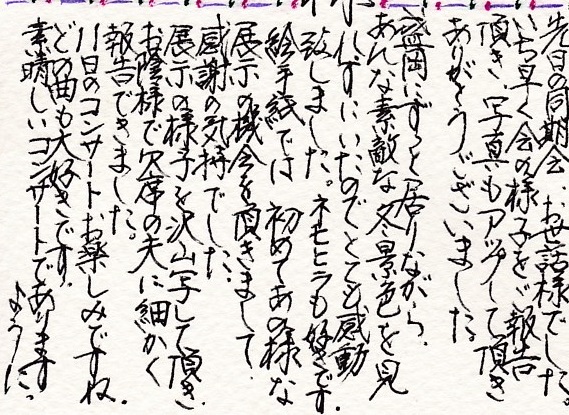 先日の同期会、お世話様でした。
いち早く会の様子をご報告
頂き、写真もアップして頂き
ありがとうございました。
盛岡にずっと居りながら、
あんな素敵な冬景色を見
れずにいたのでとても感動
致しました。ネモヒラも好きです。
絵手紙では初めてあの様な
展示の機会を頂きまして
感謝の気持でした。
展示の様子を沢山写して頂き、
お陰様で欠席の夫に細かく
報告できました。
11日のコンサートお楽しみですね。
どの曲も大好きです。
素晴しいコンサートであります
ように。